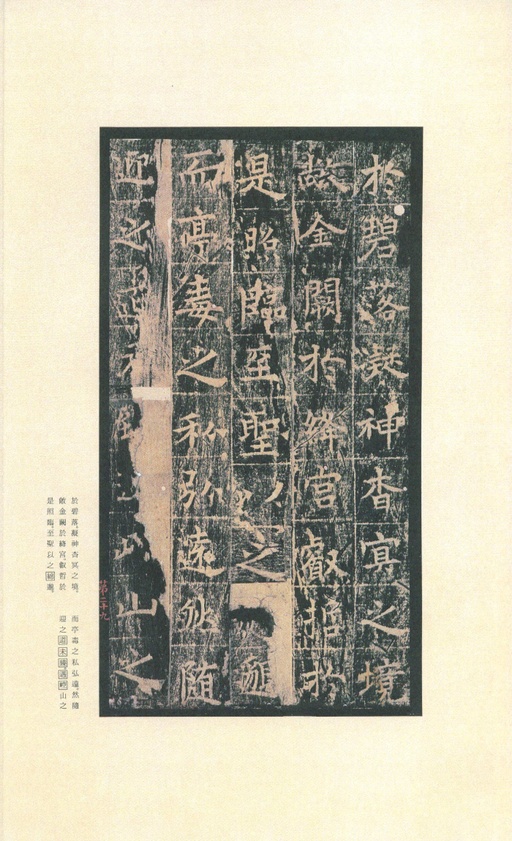 於碧落凝神杳冥之境
敞金闕於絳宮叡哲於
是照臨至聖以之
而亭毒之私弘遠然隨
迎之山之
於碧落凝神杳冥之境。
敞金闕於絳宮叡哲於
是照臨至聖以之
而亭毒之私弘遠然隨
迎之未山之
第二十九